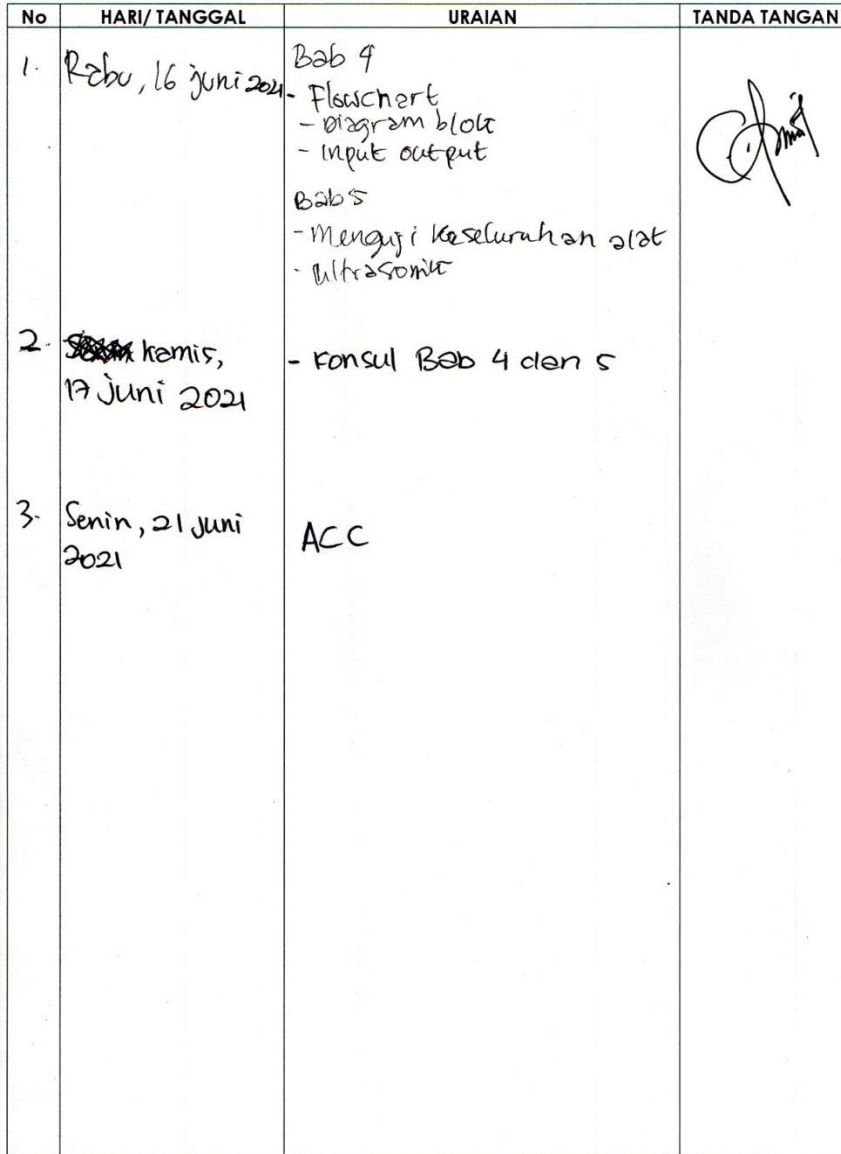 No HARI/ TANGGAL URAIAN TANDA TANGAN
1. Rabu, 16 juni 2021
Bab 4
- Flowchart
- Diagram blok
- Input output
Bab 5
- Menguji keseluruhan alat
- Ultrasonik
2. kamis,
17 juni 2021
- Konsul Bab 4 dan 5
3. Senin, 21 Juni
2021
ACC